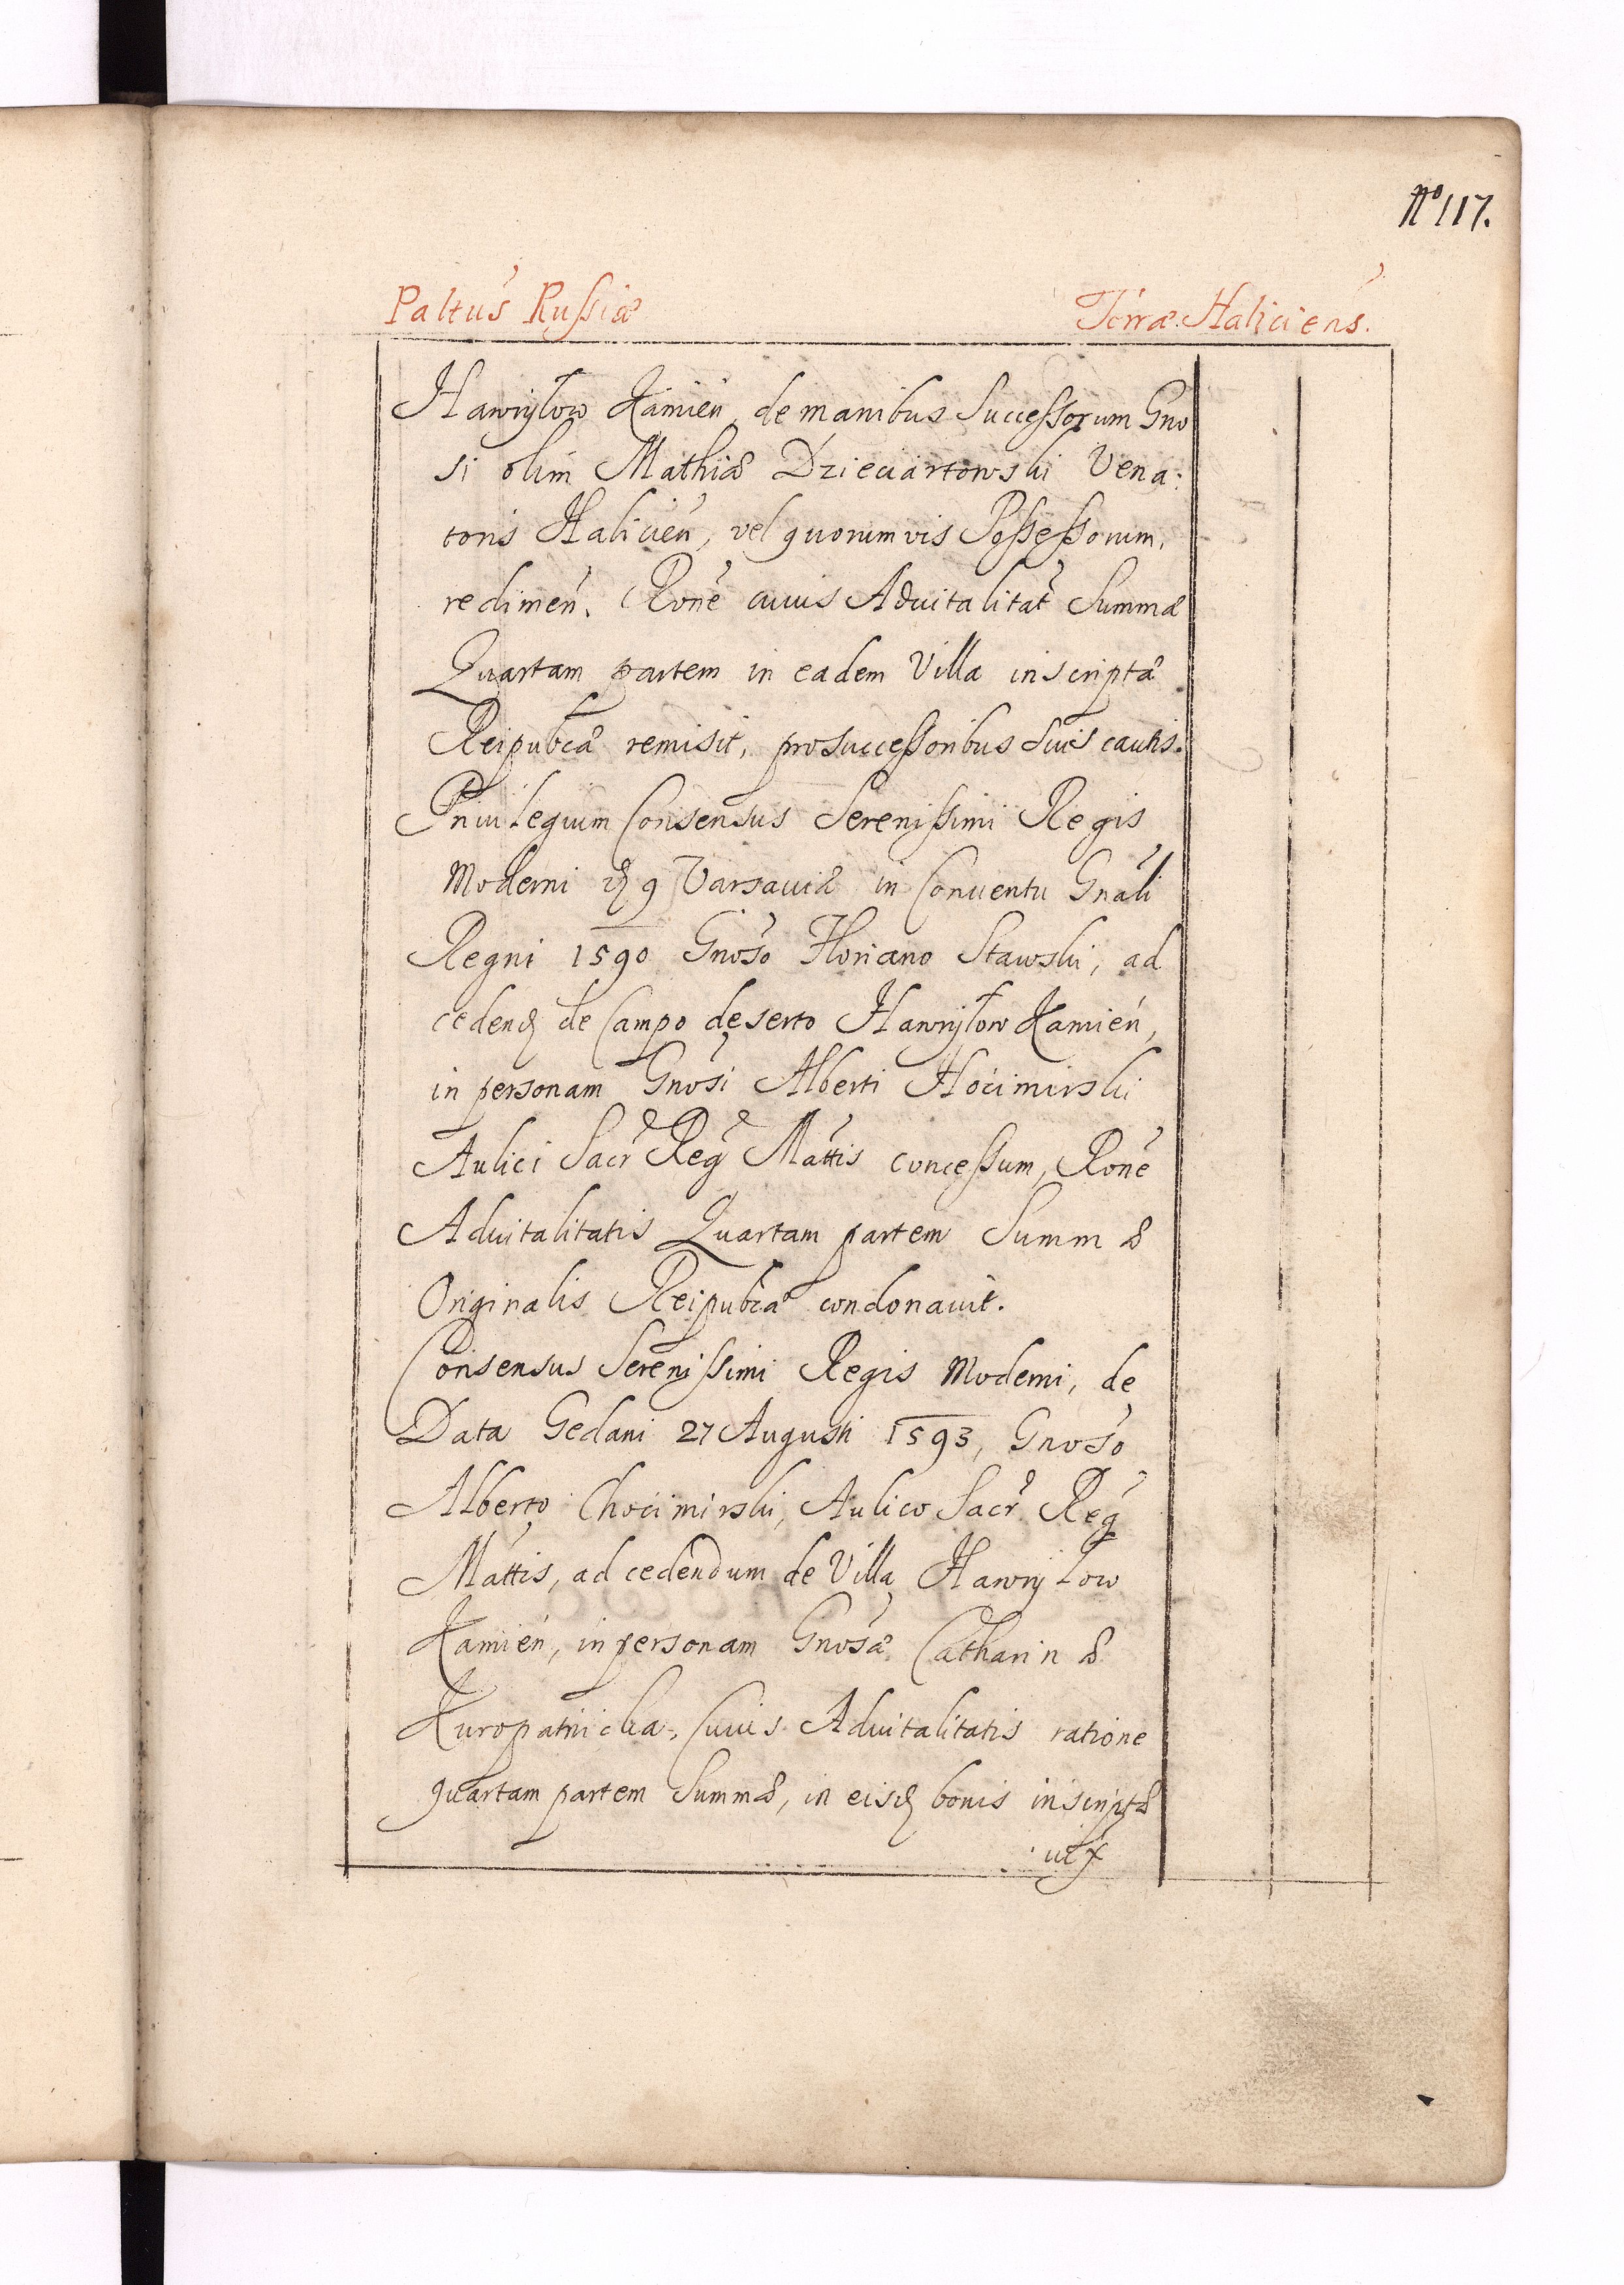 No 117.
Paltus Russiæ Terræ Haliciens.
Hawryłow Kamień, de manibus Successorum Gno
si olim Mathiæ Dzieciartowski Vena:
toris Halicień, vel quorumvis Possessorum,
redimeń. Rone cuius Advitalitat Summæ
Quartam partem in eadem Villa inscriptæ
Reipubcæ remisit, pro successoribus suis cautis.
Priuilegium Consensus Serenissimi Regis
Moderni Varsauiæ in Conuentu Gnali
Regni 1590 Gnoso Floriano Stawski, ad
cedend de Campo deserto Hawryłow Kamień,
in personam Gnosi Alberti Hocimirski
Aulici Sacr Reg Mattis concessum, Rone
Advitalitatis Quartam partem Summæ
Originalis Reipubcæ condonauit.
Consensus Serenissimi Regis Moderni, de
Data Gedani 27 Augusti 1593, Gnoso
Alberto Chocimirski, Aulico Sacr Reg
Mattis, ad cedendum de Villa Hawryłow
Kamień, in personam Gnosæ Catharinæ
Kuropatnicka, Cuius Advitalitatis ratione
quartam partem Summæ, in eisd bonis inscriptæ